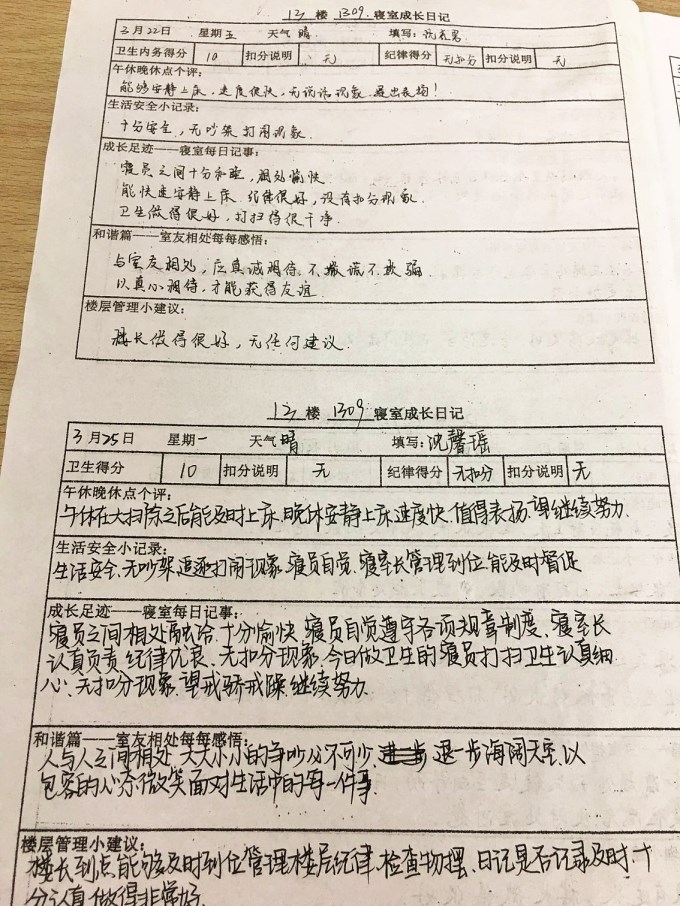 13 楼 1309 寝室成长日记
3 月 22日 星期 五 天气 晴 填写:
卫生内务得分 10 扣分说明 无 纪律得分 无扣分 扣分说明 无
午休晚休点个评:
能够安静上床,速度很快,无说话现象。提出表扬!
生活安全小记录:
十分安全,无吵架打闹现象.
成长足迹——寝室每日记事:
寝员之间十分和睦,相处愉快.
能快速安静上床.纪律很好,没有扣分现象.
卫生做得很好,打扫得很干净.
和谐篇——室友相处每每感悟:
与室友相处,应真诚相待.不撒谎不欺骗.
以真心相待,才能获得友谊.
楼层管理小建议:
楼长做得很好,无任何建议.
13 楼 1309 寝室成长日记
3 月 25日 星期 一 天气 晴 填写: 沈馨瑶
卫生得分 10 扣分说明 无 纪律得分 无扣分 扣分说明 无
午休晚休点个评:
午休在大扫除之后能及时上床.晚休安静上床速度快.值得表扬.望继续努力.
生活安全小记录:
生活安全.无吵架追逐打闹现象.寝员自觉.寝室长管理到位.能及时督促
成长足迹——寝室每日记事:
寝员之间相处融洽.十分愉快.寝员自觉遵守各项规章制度、寝室长
认真负责 纪律优良、无扣分现象.今日做卫生的寝员打扫卫生认真细
心.无扣分现象.望戒骄戒躁.继续努力.
和谐篇——室友相处每每感悟:
人与人之间相处.大大小小的争吵必不可少.退一步海阔天空.以
包容的心态微笑面对生活中的每一件事
楼层管理小建议:
楼长到点能够及时到位管理楼层纪律.检查物摆、日记是否记录及时.十
分认真.做得非常好.